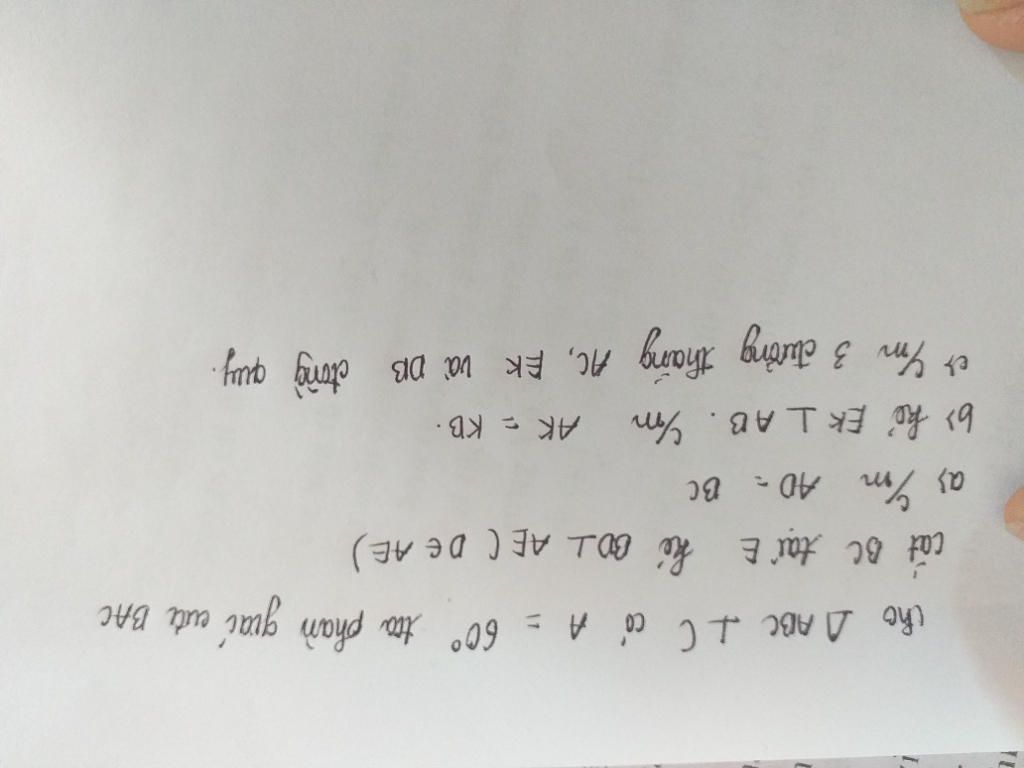 Cho △ABC ⊥ C có A = 60° tia phân giác của BAC
cắt BC tại E kẻ BD ⊥ AE ( D ∈ AE )
a) c/m AD = BC
b) kẻ EK ⊥ AB. c/m AK = KB.
c) c/m 3 đường thẳng AC, EK và DB đồng quy.